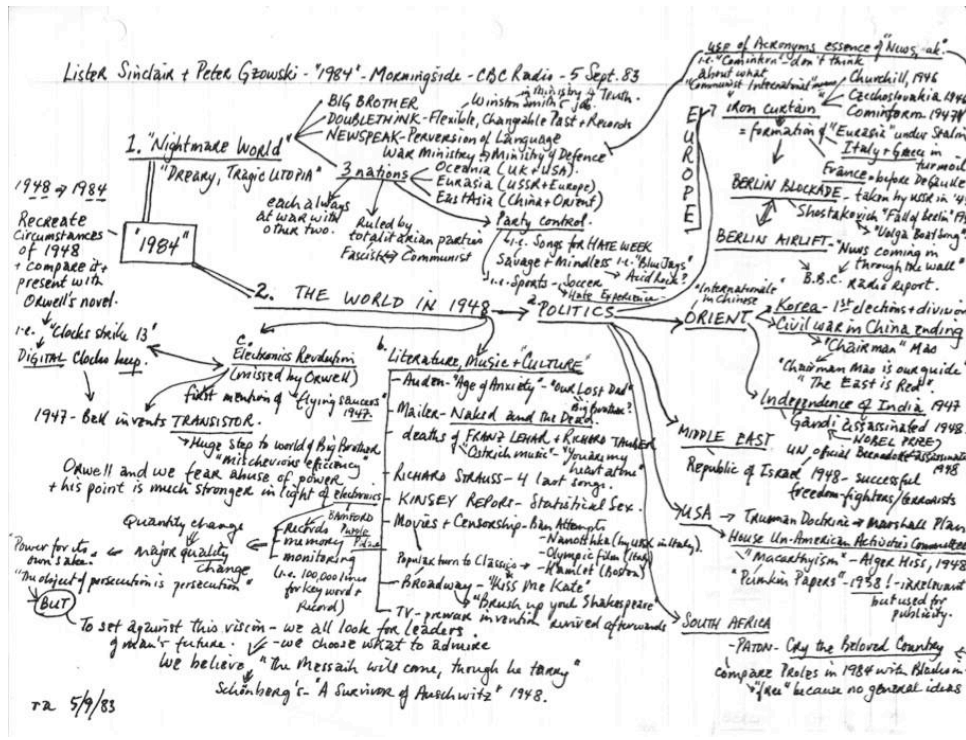 Lister Sinclair + Peter Gzowski - "1984" - Morningside - CBC Radio - 5 Sept. 83
1. "Nightmare World"
"Dreary, Tragic UTOPIA"
BIG BROTHER
DOUBLETHINK - Flexible, Changable Past + Records
in Ministry of Truth.
Winston Smith's job.
NEWSPEAK - Perversion of Language
War Ministry → Ministry of Defence
3 nations
Oceania (UK + USA).
Eurasia (USSR + Europe)
EastAsia (China + Orient)
each always
at war with
other two.
Ruled by
totalitarian parties
Fascist ↔ Communist
Party control.
i.e. Songs for HATE WEEK
Savage + Mindless i.e. "Blue Jays"
→ Acid Rock?
i.e. Sports - Soccer
→ Hate Experience.
1948 → 1984
Recreate
Circumstances
of 1948
+ compare it +
present with
Orwell's novel.
i.e. "Clocks strike 13"
DIGITAL Clocks keep.
"1984"
2. THE WORLD IN 1948
c. Electronics Revolution
(missed by Orwell)
first mention of "flying saucers"
1947.
1947 - Bell invents TRANSISTOR.
Huge step to world of Big Brother
"mischevious efficiency"
Orwell and we fear abuse of power
+ his point is much stronger in light of electronics
BAMFORD
Puzzle
Palace
records
memory
monitoring
(i.e. 100,000 lines
for key word +
Record)
Quantity change
major quality
change
"Power for its
own sake."
"The object of persecution is persecution"
BUT
To set against this vision - we all look for leaders
of man's future. - we choose what to admire
We believe, "The Messaih will come, though he tarry"
Schönberg's - "A Survivor of Auschwitz" 1948.
b. Literature, Music + "CULTURE"
Auden - "Age of Anxiety" - "Our Lost Dad"
Big Brother?
Mailer - Naked and the Dead.
deaths of FRANZ LEHAR + RICHARD TAUBER
"Ostrich music" - "You are my
heart alone"
RICHARD STRAUSS - 4 last songs.
KINSEY REPORT - Statistical Sex.
Movies + Censorship - Ban Attempts
- Ninotchka (by USSR in Italy).
- Olympic film (Italy)
- Hamlet (Boston)
Popular turn to Classics
Broadway - "Kiss Me Kate"
"Brush up your Shakespeare"
TV - prewar invention revived afterwards
a. POLITICS
EUROPE
use of Acronyms essence of "Nuws,-ak".
i.e. "Comintern" - don't think
about what
"Communist International" means
Churchill, 1946
Czechoslovakia 1946
Cominform 1947
IRON CURTAIN
= formation of "Eurasia" under Stalin
Italy + Greece in
turmoil
France - before DeGaulle
BERLIN BLOCKADE - taken by USSR in '45
Shostakovich "Fall of Berlin"
"Volga Boat Song".
BERLIN AIRLIFT - "Nuws coming in
through the wall"
B.B.C. Radio Report.
"Internationale"
in Chinese
ORIENT
Korea - 1st elections + division
Civil war in China ending
"Chairman" Mao
"Chairman Mao is our guide"
"The East is Red".
Independence of India 1947
Gandi assassinated 1948.
NOBEL PRIZE?
MIDDLE EAST
UN official Bernadotte assassinated
1948
Republic of Israel 1948 - successful
freedom-fighters/terrorists
USA → Truman Doctrine → Marshall Plan
House Un-American Activities Committee
"Macarthyism" - Alger Hiss, 1948
"Pumkin Papers" - 1958! - irrelevant
but used for
publicity.
SOUTH AFRICA
- PATON - Cry the Beloved Country
compare Proles in 1984 with Blacks in
"free" because no general ideas
5/9/83